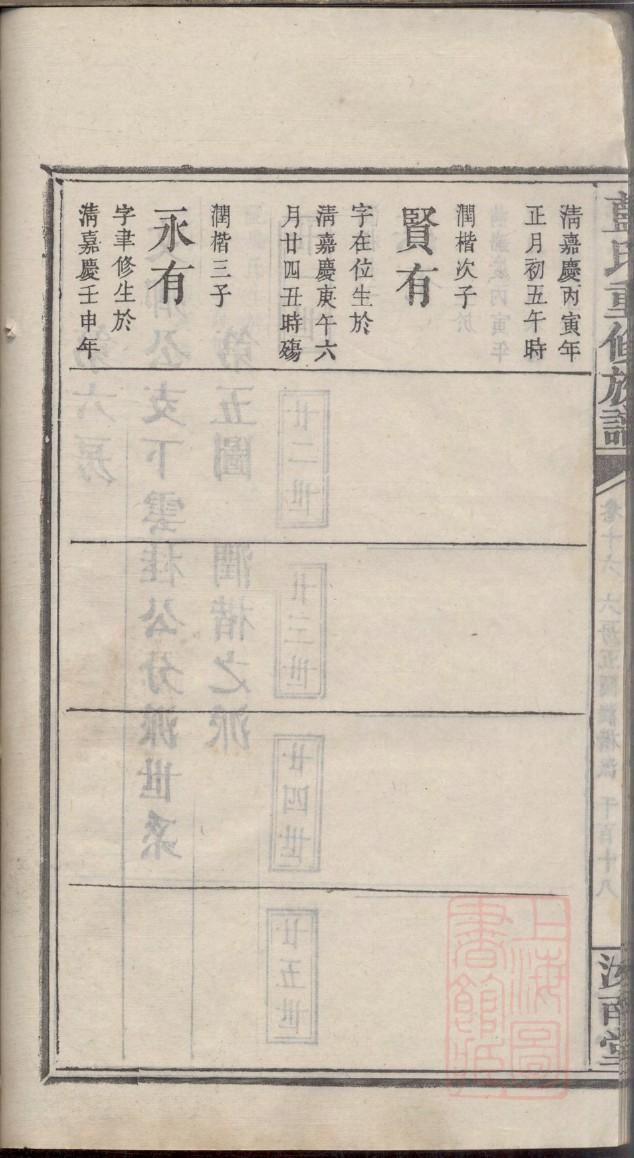 藍氏重修族譜
卷十六 六房五圖潤楷派 千百十八
汝南堂
清嘉慶丙寅年
正月初五午時
潤楷次子
賢有
字在位生於
清嘉慶庚午六
月廿四丑時殤
潤楷三子
永有
字聿修生於
清嘉慶壬申年
上海圖
書館藏